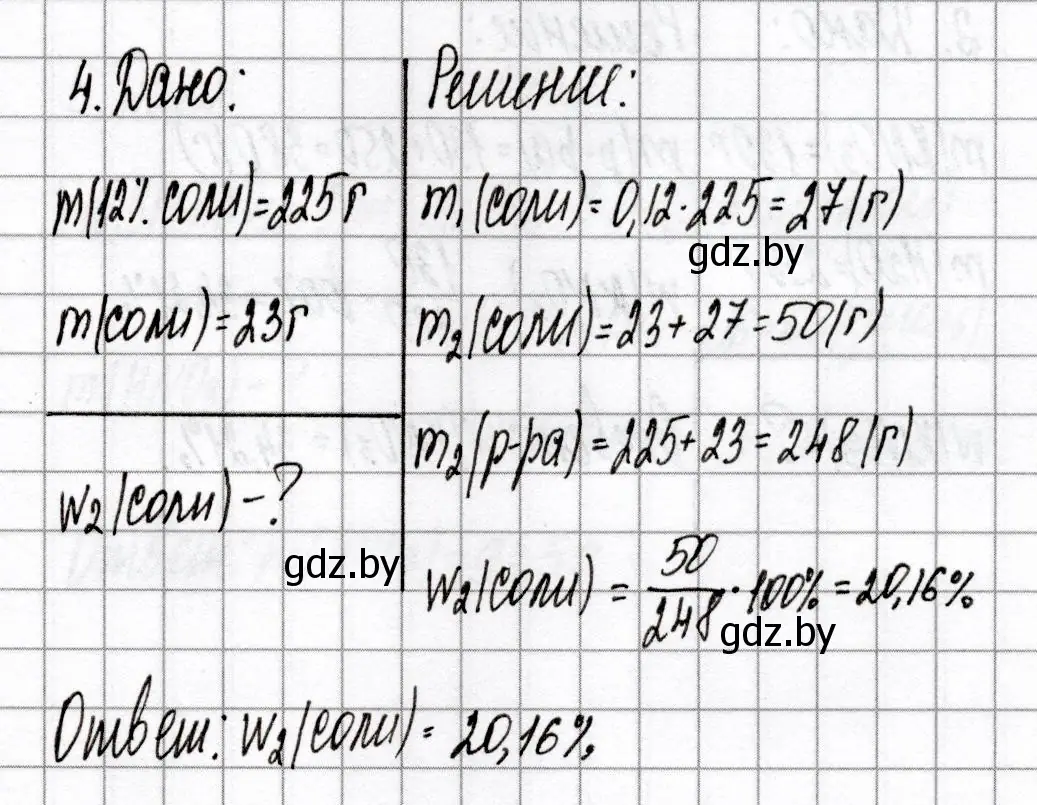 4. Дано:
m(12% соли)=225г
m(соли)=23г
w₂(соли)-?
Решение:
m₁(соли)=0,12·225=27(г)
m₂(соли)=23+27=50(г)
m₂(р-ра)=225+23=248(г)
w₂(соли) = 50/248 · 100% = 20,16%
Ответ: w₂(соли) = 20,16%
gdz.by
gdz.by
gdz.by